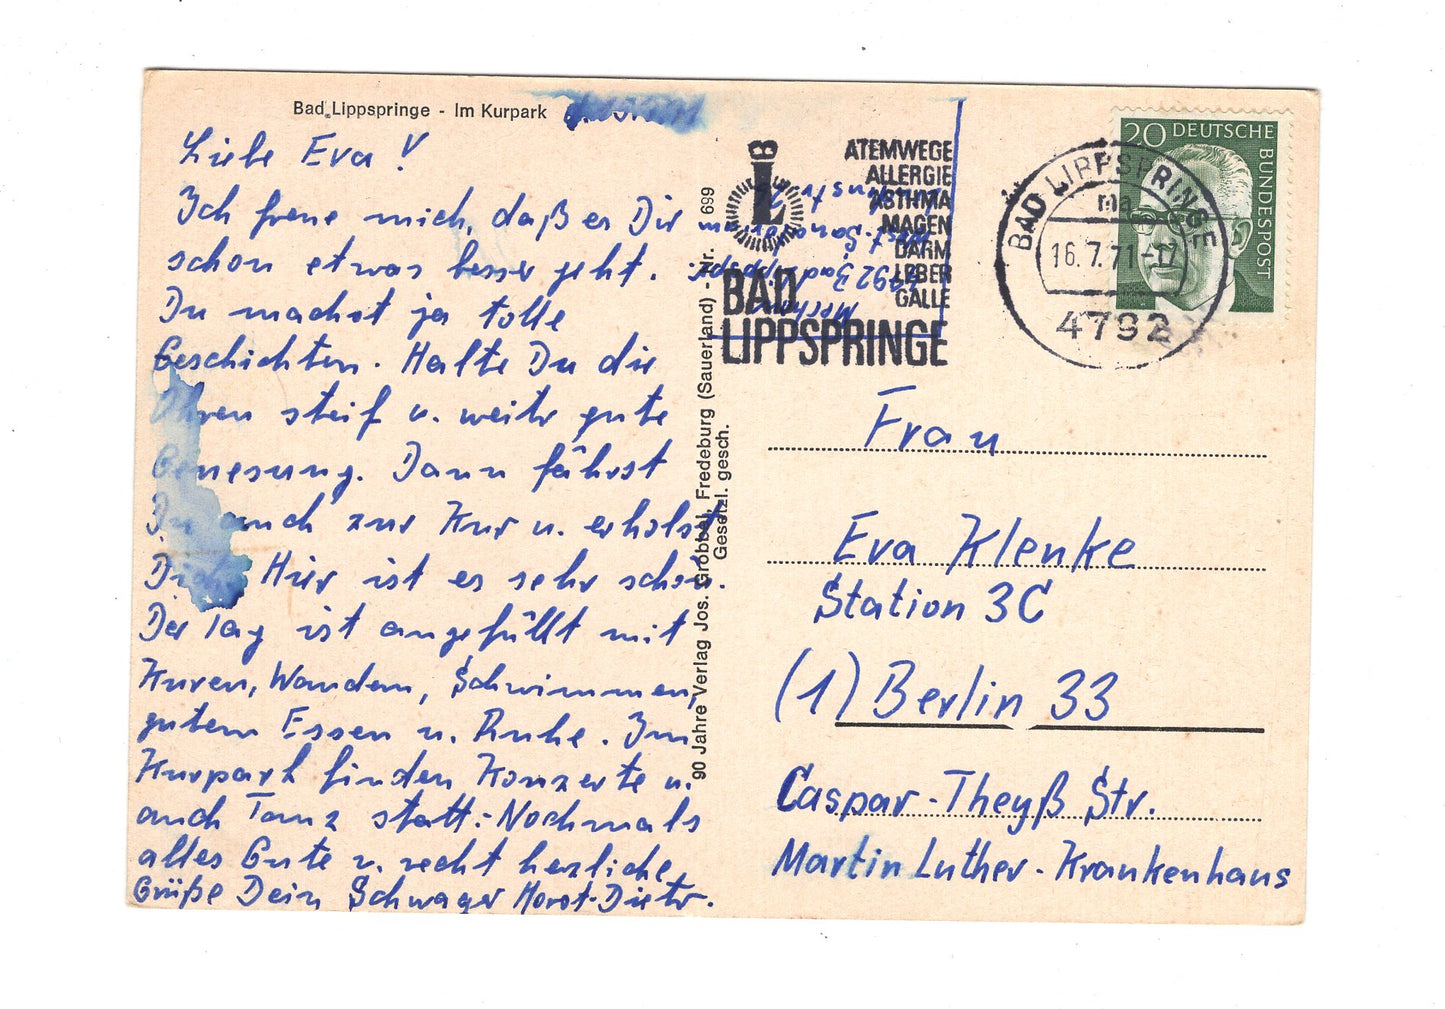 Bad Lippspringe - Im Kurpark
Liebe Eva!
Ich freue mich, daß es Dir
schon etwas besser geht.
Du machst ja tolle
Geschichten. Halte Du die
Ohren steif u. weiter gute
Genesung. Dann fährst
Du auch zur Kur u. erholst
Dich. Hier ist es sehr schön.
Der Tag ist angefüllt mit
Kuren, Wandern, Schwimmen,
gutem Essen u. Ruhe. Im
Kurpark finden Konzerte u.
auch Tanz statt.- Nochmals
alles Gute u. recht herzliche
Grüße Dein Schwager Horst-Dieter.
90 Jahre Verlag Jos. Grobbel, Fredeburg (Sauerland) - Nr. 699
Gesetzl. gesch.
4792 Bad Lippspr.
ATEMWEGE
ALLERGIE
ASTHMA
MAGEN
DARM
LEBER
GALLE
BAD
LIPPSPRINGE
BAD LIPPSPRINGE
ma
16.7.71-17
4792
20 DEUTSCHE
BUNDESPOST
Frau
Eva Klenke
Station 3C
(1) Berlin 33
Caspar-Theyß Str.
Martin Luther-Krankenhaus